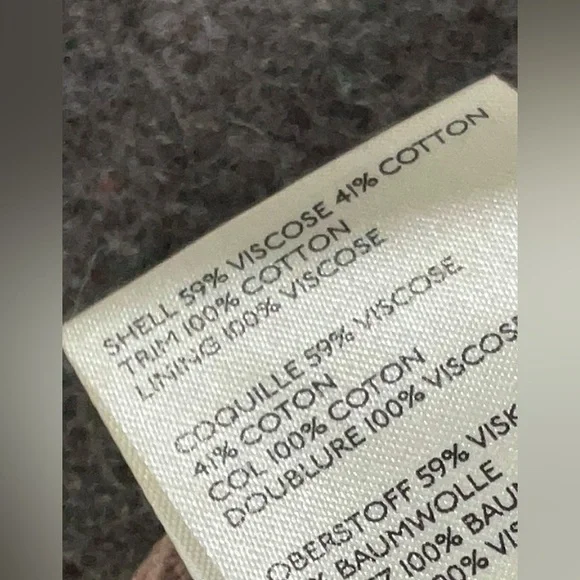 SHELL 59% VISCOSE 41% COTTON
TRIM 100% COTTON
LINING 100% VISCOSE
COQUILLE 59% VISCOSE
41% COTON
COL 100% COTON
DOUBLURE 100% VISCOSE
OBERSTOFF 59%
BAUMWOLLE
100%